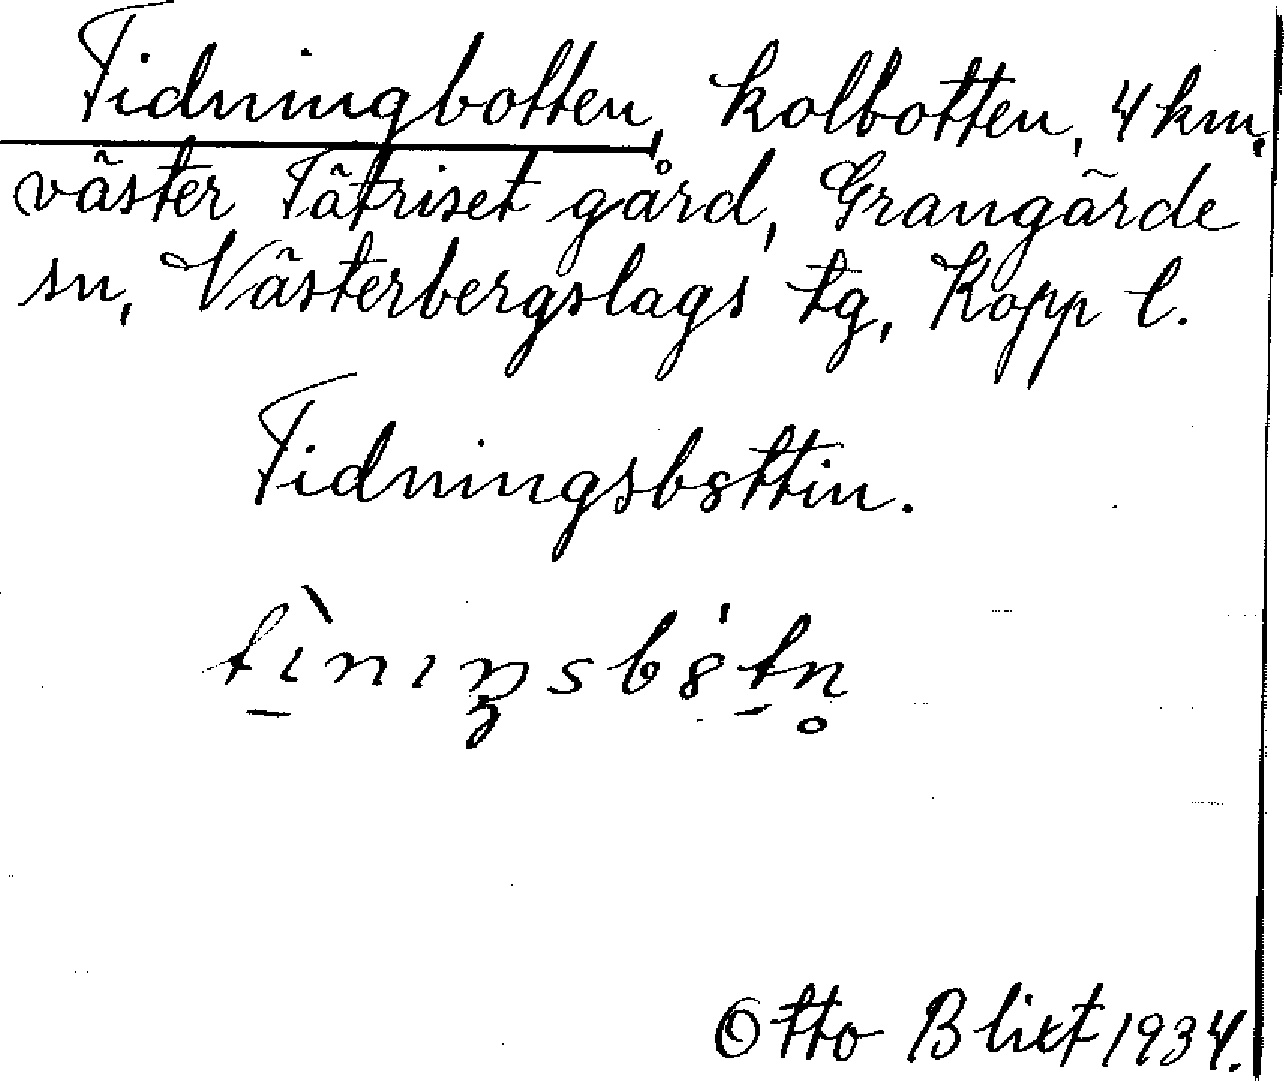 Tidningbotten, kolbotten, 4 km.
väster Tätriset gård, Grangärde
sn, Västerbergslags tg, Kopp l.
Tidningsbȣttin.
tìniŋsbȣ́tn̥
Otto Blixt 1934.